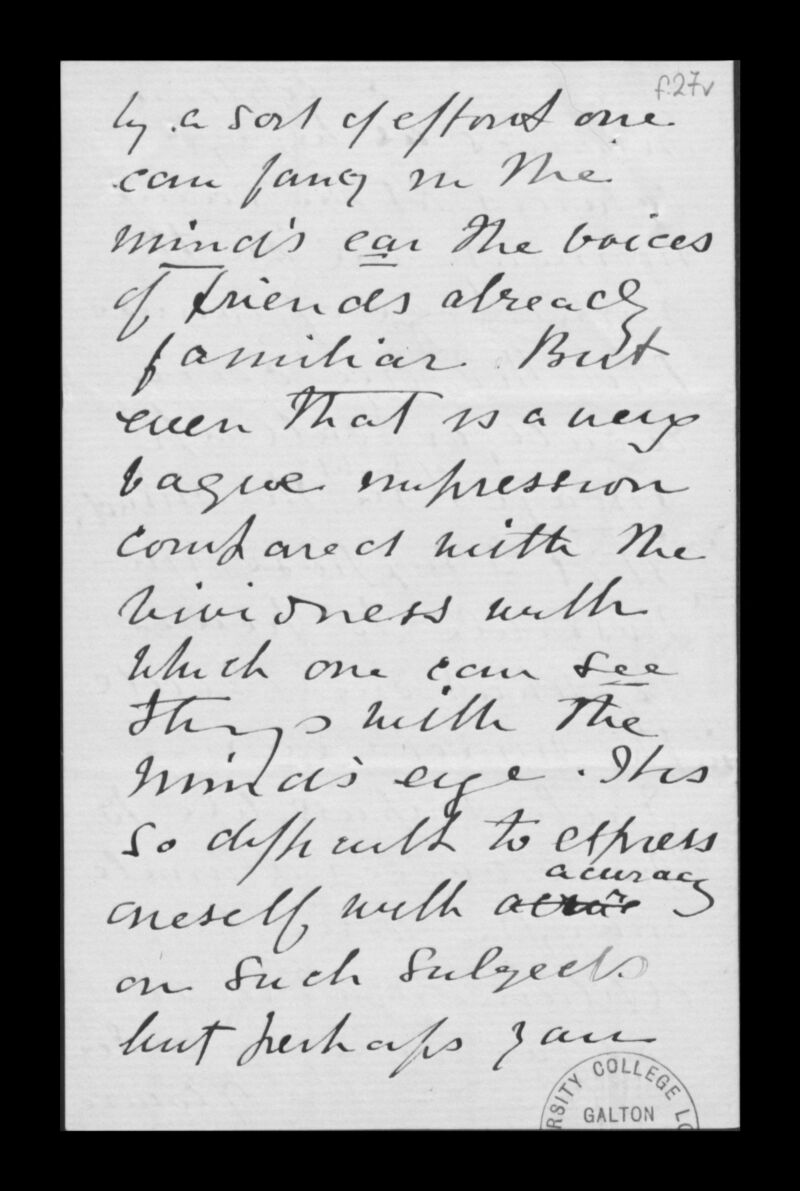 f.27v
by a sort of effort one
can fancy in the
mind's ear the voices
of friends already
familiar. But
even that is a very
vague impression
compared with the
vividness with
which one can see
things with the
mind's eye. It is
so difficult to express
acuracy
oneself with
on such subjects
but perhaps you
RSITY COLLEGE LO
GALTON